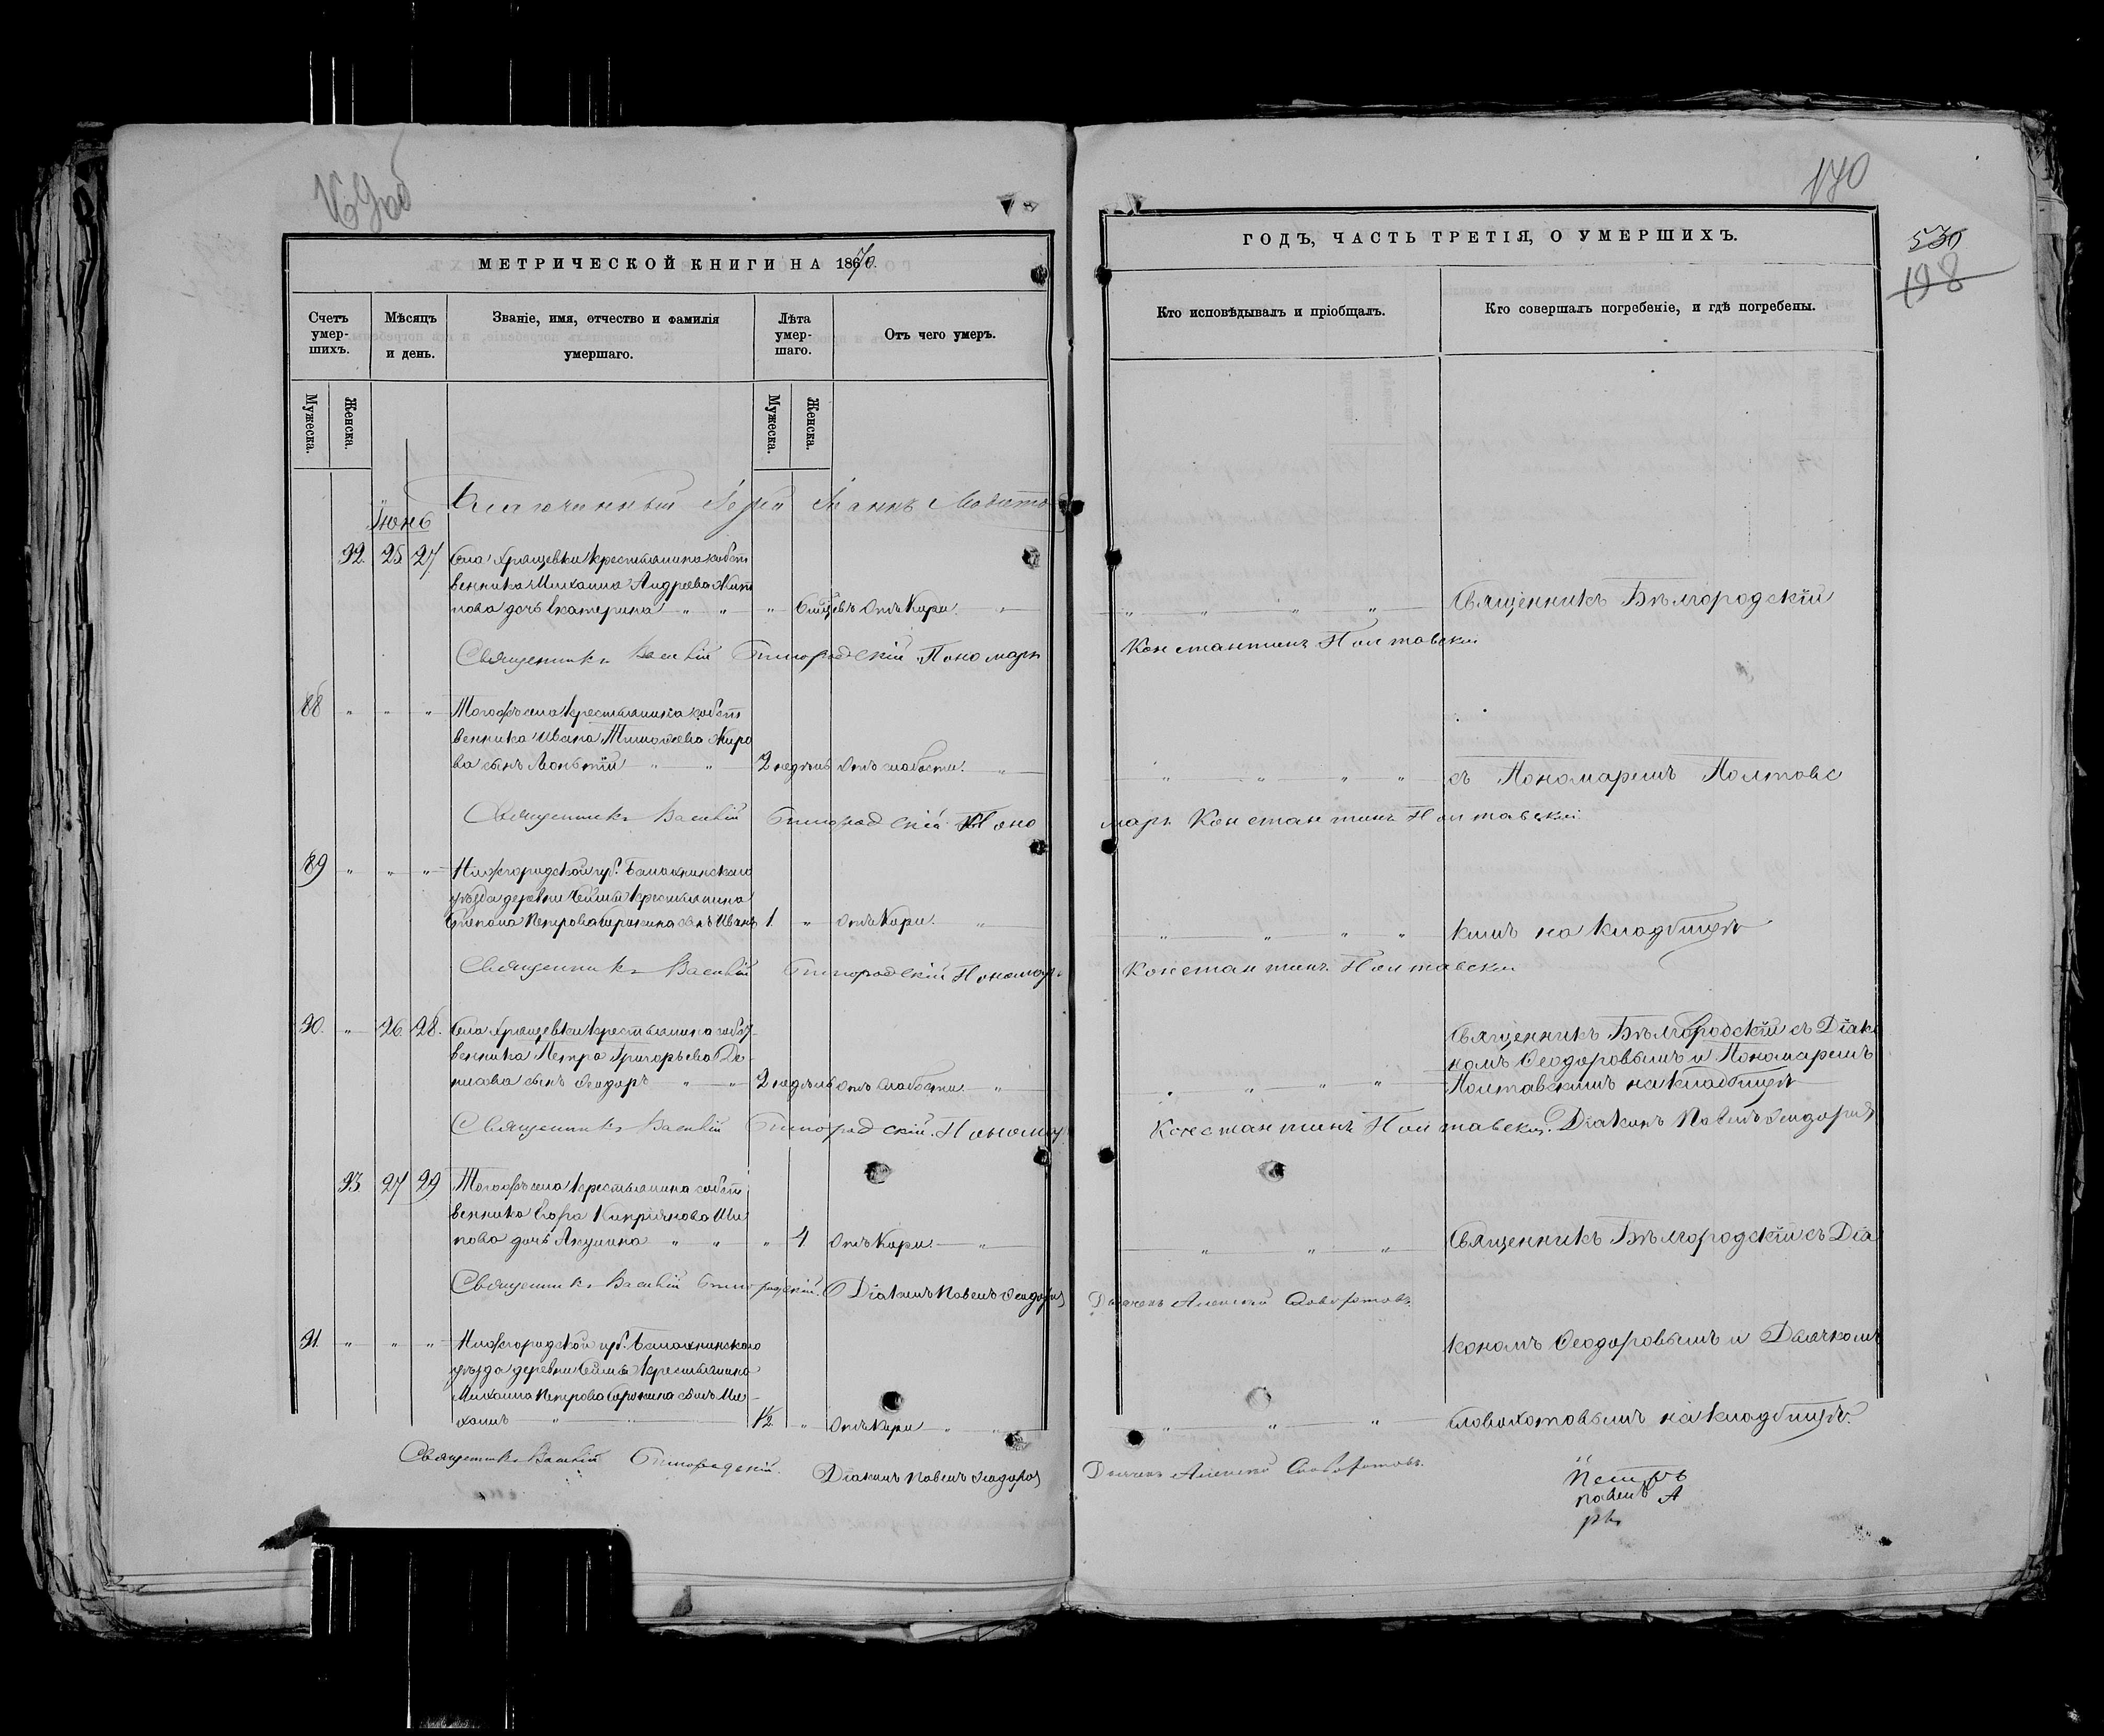 170
530
198
МЕТРИЧЕСКОЙ КНИГИ НА 1870.
ГОДЪ, ЧАСТЬ ТРЕТІЯ, О УМЕРШИХЪ.
Счетъ умер-шихъ.
Мѣсяцъ и день.
Званіе, имя, отчество и фамилія умершаго.
Лѣта умер-шаго.
Отъ чего умеръ.
Кто исповѣдывалъ и пріобщалъ.
Кто совершалъ погребеніе, и гдѣ погребены.
Мужеска.
Женска.
Мужеска.
Женска.
Благочинный Іерей Іоаннъ
Іюнь
92. 25 27 Села Хрящевки крестьянина собст
венника Михаила Андреева
нова дочь Екатерина " " " 6 мѣсяцевъ Отъ Кори. "
Священникъ Бѣлгородскій
Священникъ Василій Бѣлгородскій. Пономарь Константинъ Полтавскій
88 " " " Тогожъ села крестьянина собст
венника Ивана Тимоѳеева Жиро
ва сынъ Леонтій " " 2 недѣль Отъ слабости. "
съ Пономаремъ Полтавс
Священникъ Василій Бѣлгородскій Пономарь Константинъ Полтавскій
89 " " " Нижгородской губ. Балахнинскаго
уѣзда деревни крестьянина
Степана Петрова сынъ Иванъ 1. " Отъ Кори. "
кимъ на кладбищѣ
Священникъ Василій Бѣлгородскій Пономарь Константинъ Полтавскій
90. " 26. 28. Села Хрящевки крестьянина собст-
венника Петра Григорьева Де-
нисова сынъ Ѳеодоръ " " 2 недѣль Отъ слабости "
Священникъ Бѣлгородскій съ Діако
номъ Ѳеодоровымъ и Пономаремъ
Полтавскимъ на кладбищѣ
Священникъ Василій Бѣлгородскій. Пономарь Константинъ Полтавскій. Діаконъ Павелъ Ѳеодоровъ
93 27 29 Тогожъ села крестьянина собст
венника Егора Кипріянова Ши
пова дочь Акулина " " " 1 Отъ Кори. "
Священникъ Бѣлгородскій съ Діа
Священникъ Василій Бѣлгородскій. Діаконъ Павелъ Ѳеодоровъ Дьячекъ Алексѣй
91. " " " Нижгородской губ. Балахнинскаго
уѣзда деревни крестьянина
Михаила Петрова сынъ Ми-
хаилъ " " 1½ " Отъ Кори " "
кономъ Ѳеодоровымъ и Дьячкомъ
на кладбищѣ.
Священникъ Василій Бѣлгородскій. Діаконъ Павелъ Ѳеодоровъ Дьячекъ Алексѣй
Петръ
Павелъ А